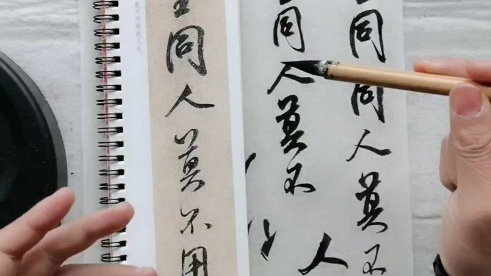 同同人莫不
人
同人莫不
同人莫不用